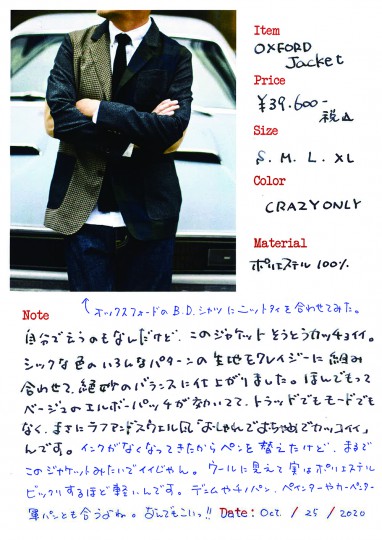 Item
OXFORD
Jacket
Price
¥39.600-
税込
Size
S. M. L. XL
Color
CRAZY ONLY
Material
ポリエステル 100%
↑オックスフォードのB.D.シャツにニットタイを合わせてみた。
Note
自分で言うのもなんだけど、このジャケットそうとうカッチョイイ。
シックな色のいろんなパターンの生地をクレイジーに組み
合わせて、絶妙のバランスに仕上がりました。ほんでもって
ベージュのエルボーパッチが効いてて、トラッドでもモードでも
なく、まさにラフアンドスウェル的「おしゃれでおちゃめでカッコイイ」
んです。インクがなくなってきたからペンを替えたけど、まるで
このジャケットみたいでイイじゃん。ウールに見えて実はポリエステル
ビックリするほど軽いんです。デニムやチノパン、ペインターやカーペンター
軍パンとも合うよね。なんでもこいっ!!
Date: Oct. / 25 / 2020